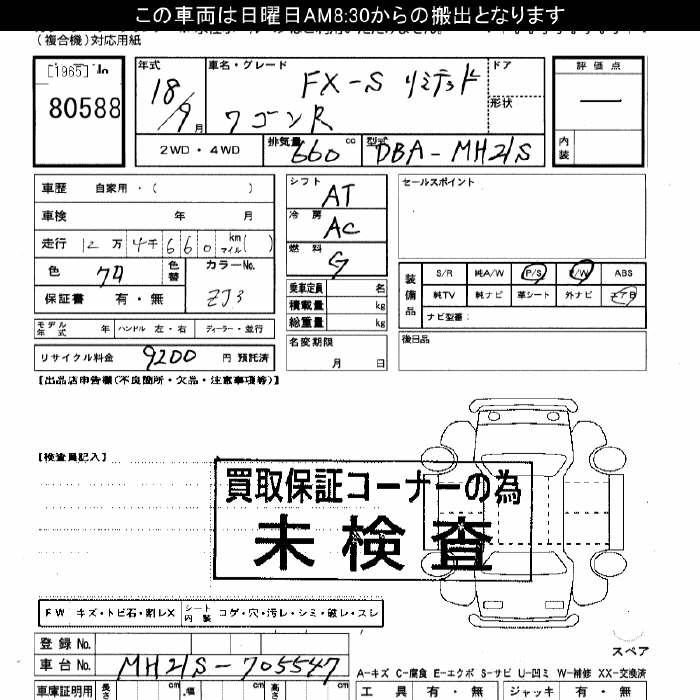 この車両は日曜日AM8:30からの搬出となります
(複合機)対応用紙
[1965]
80588
年式
18/9月
車名・グレード
FX-S リミテッド
ワゴンR
ドア
形状
評価点
内装
2WD・4WD
排気量 660 cc
型式 DBA-MH21S
車歴 自家用・( )
車検 年 月
走行 12万4千660 km マイル( )
色
色替
カラーNo.
ZJ3
保証書 有・無
シフト AT
冷房 AC
燃料 G
乗車定員 名
積載量 kg
総重量 kg
セールスポイント
装備品
S/R 純A/W P/S P/W ABS
純TV 純ナビ 革シート 外ナビ エアB
ナビ型番:
モデル年式 年 ハンドル 左・右 ディーラー・並行
リサイクル料金 9200 円 預託済
名変期限
月 日
後日品
【出品店申告欄(不良箇所・欠品・注意事項等)】
【検査員記入】
買取保証コーナーの為
未検査
FW キズ・トビ石・割レX シート内装 コゲ・穴・汚レ・シミ・破レ・スレ
登録No.
車台No. MH21S-705547
スペア
A-キズ C-腐食 E-エクボ S-サビ U-凹ミ W-補修 XX-交換済
車庫証明用 長さ cm 幅 cm 高さ cm
工具 有・無 ジャッキ 有・無